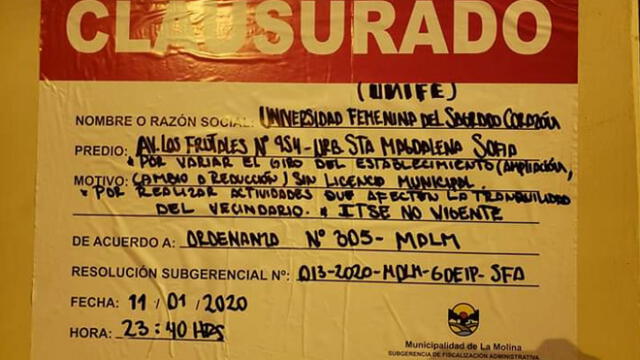 CLAUSURADO
(UNIFE)
NOMBRE O RAZÓN SOCIAL: UNIVERSIDAD FEMENINA DEL SAGRADO CORAZÓN
PREDIO: AV. LOS FRUTALES N° 954 - URB. STA MAGDALENA SOFIA
* POR VARIAR EL GIRO DEL ESTABLECIMIENTO (AMPLIACIÓN,
MOTIVO: CAMBIO O REDUCCIÓN) SIN LICENCIA MUNICIPAL.
* POR REALIZAR ACTIVIDADES QUE AFECTEN LA TRANQUILIDAD
DEL VECINDARIO. * ITSE NO VIGENTE
DE ACUERDO A: ORDENANZA N° 305 - MDLM
RESOLUCIÓN SUBGERENCIAL Nº: 013-2020-MDLM-GDEIP-SFA
FECHA: 11 / 01 / 2020
HORA: 23:40 HRS
Municipalidad de La Molina
SUBGERENCIA DE FISCALIZACIÓN ADMINISTRATIVA